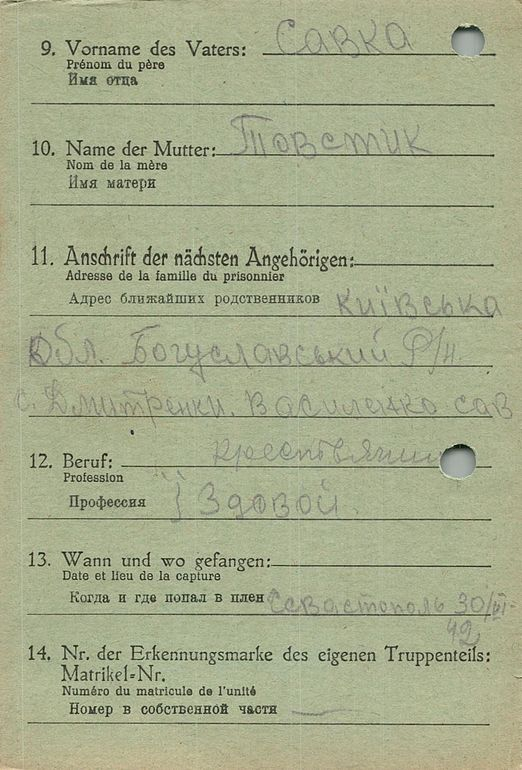 9. Vorname des Vaters: Савка
Prénom du père
Имя отца
10. Name der Mutter: Товстик
Nom de la mère
Имя матери
11. Anschrift der nächsten Angehörigen:
Adresse de la famille du prisonnier
Адрес ближайших родственников Київська
Обл. Богуславський Р/н.
с. Дмитренки. Василенко сав
12. Beruf:
Profession
Профессия Їздовой.
13. Wann und wo gefangen:
Date et lieu de la capture
Когда и где попал в плен Севастополь 30/VI-
42
14. Nr. der Erkennungsmarke des eigenen Truppenteils:
Matrikel=Nr.
Numéro du matricule de l'unité
Номер в собственной части —